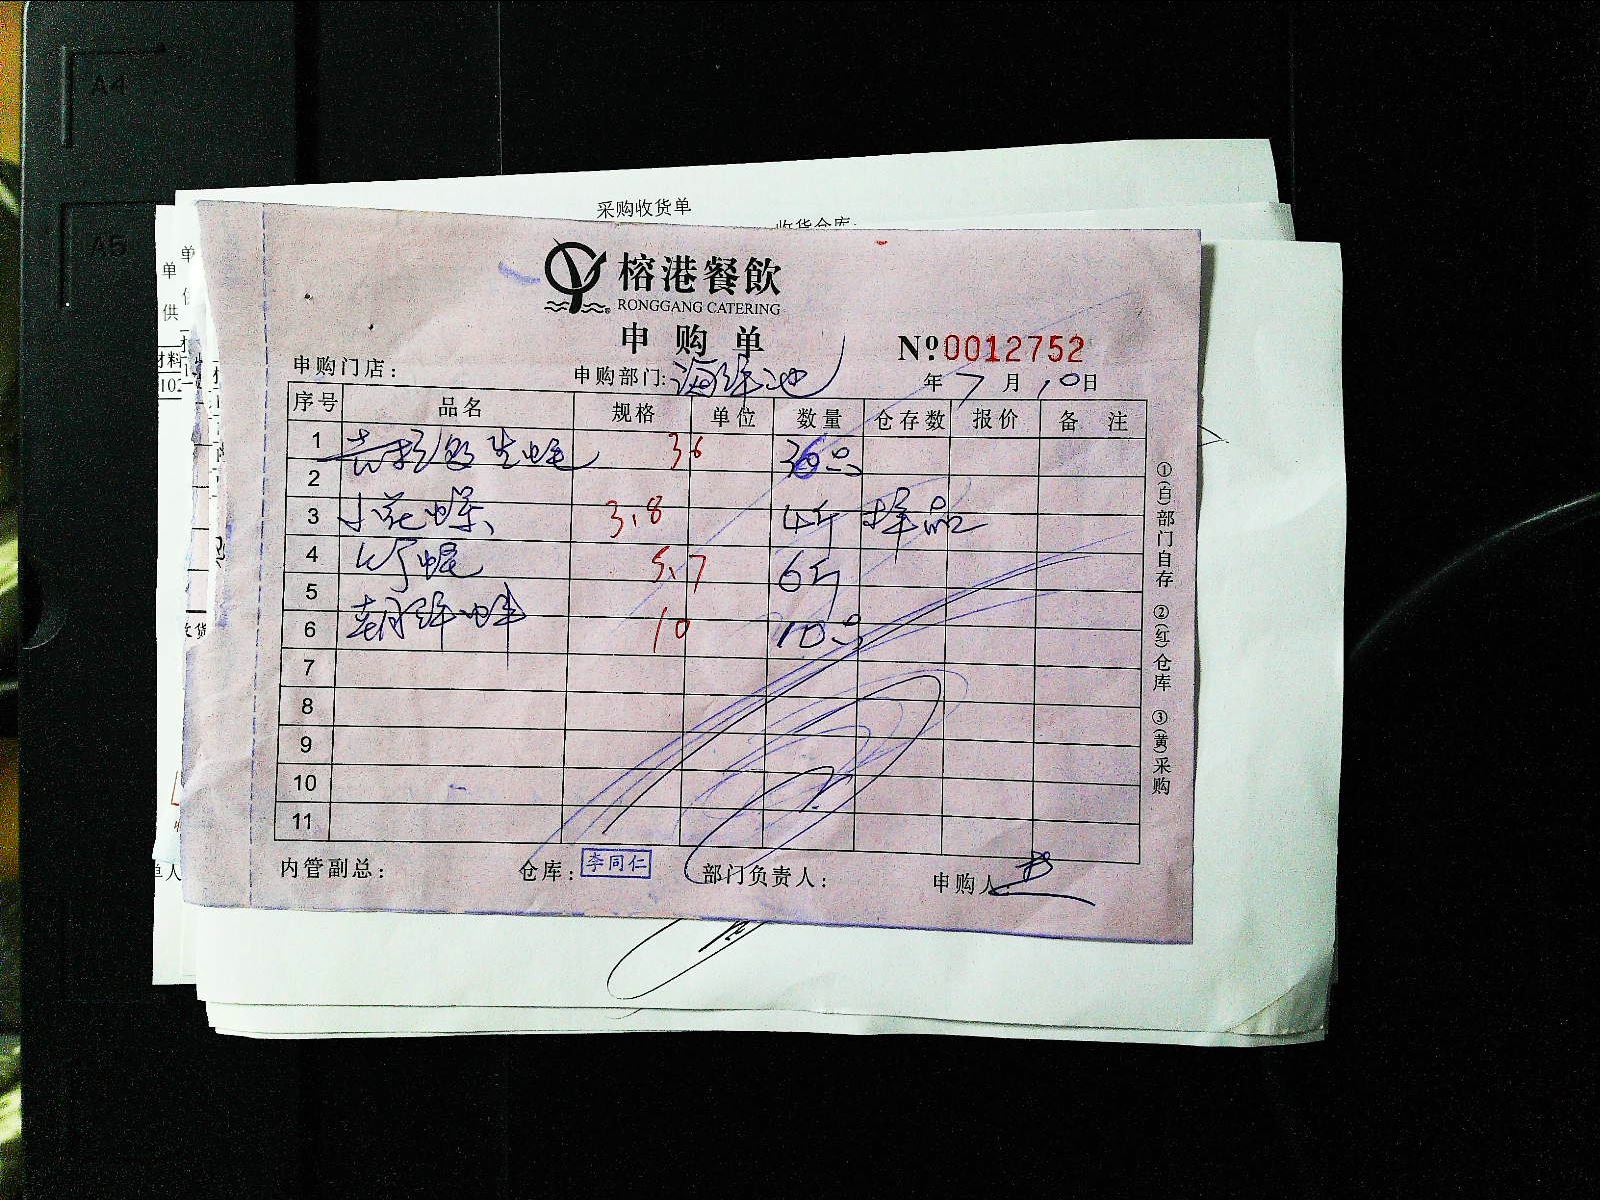 A4
A5
采购收货单
榕港餐飲
RONGGANG CATERING
申购单
№0012752
申购门店：
申购部门：海鲜池
年7月10日
序号 品名 规格 单位 数量 仓存数 报价 备注
1 生蚝 36 36只
2
3 小花螺 3.8 4斤 样品
4 5.7 6斤
5
6 10 10只
7
8
9
10
11
①(白)部门自存 ②(红)仓库 ③(黄)采购
内管副总：
仓库：李同仁
部门负责人：
申购人：